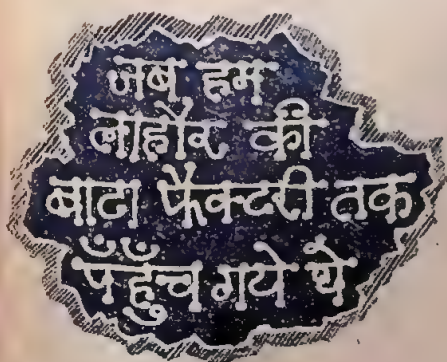 जब हम
लाहौर की
बाटा फैक्टरी तक
पँहुँच गये थे